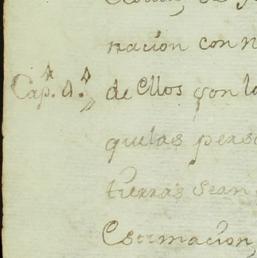 nacion con n
Cap.º 4.º de Ellos con la
que las perso
tierras sean
Estimacion,